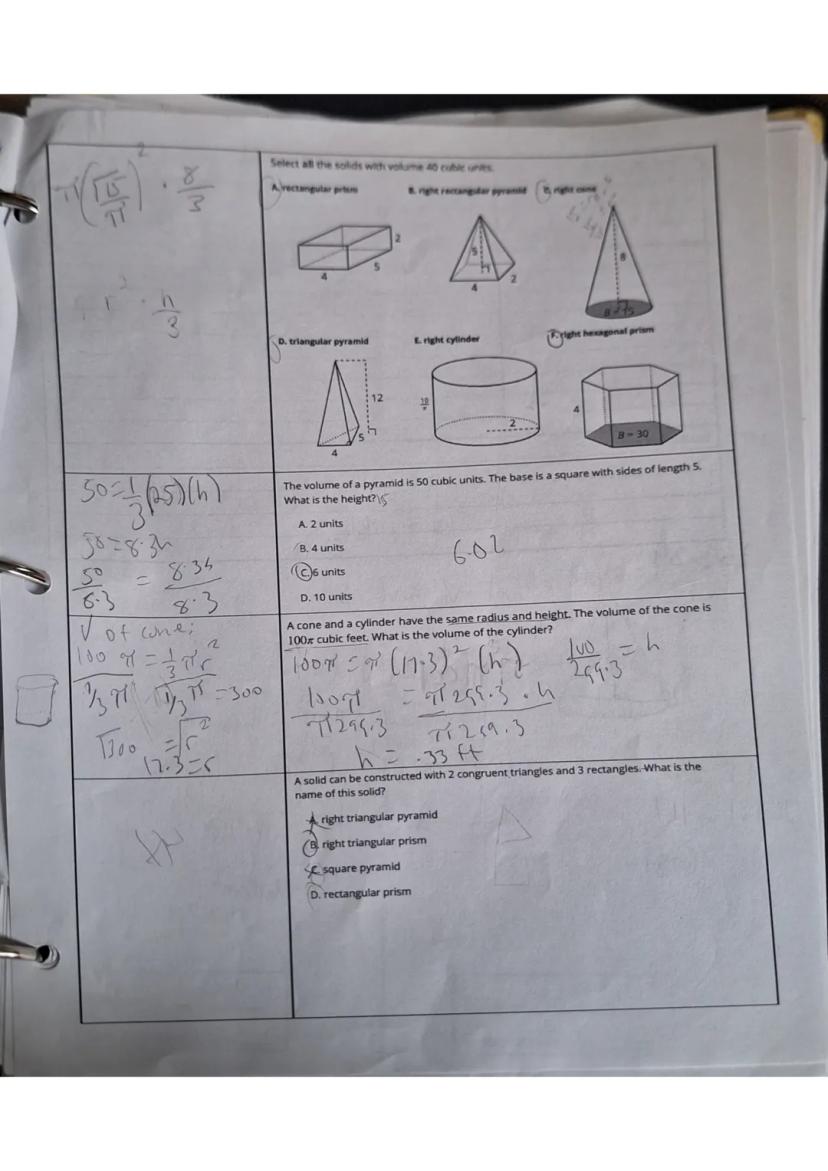 Select all the solids with volume 40 cubic units.
A. rectangular prism
B. right rectangular pyramid
C. right cone
2
5
4
5
4
2
8
B = 15
D. triangular pyramid
E. right cylinder
F. right hexagonal prism
12
5
4
10
π
2
4
B = 30
π(√15/π)² · 8/3
r² · h/3
The volume of a pyramid is 50 cubic units. The base is a square with sides of length 5.
What is the height?
A. 2 units
B. 4 units
C. 6 units
D. 10 units
6.02
50=1/3(25)(h)
50=8.3h
50/8.3 = 8.3h/8.3
A cone and a cylinder have the same radius and height. The volume of the cone is
100π cubic feet. What is the volume of the cylinder?
V of cone:
100π = 1/3πr²
1/3π 1/3π =300
√300 = √r²
17.3=r
100π = π(17.3)² (h)
100/299.3 = h
100π/π299.3 = π299.3·h/π299.3
h = .33 ft
A solid can be constructed with 2 congruent triangles and 3 rectangles. What is the
name of this solid?
A. right triangular pyramid
B. right triangular prism
C. square pyramid
D. rectangular prism